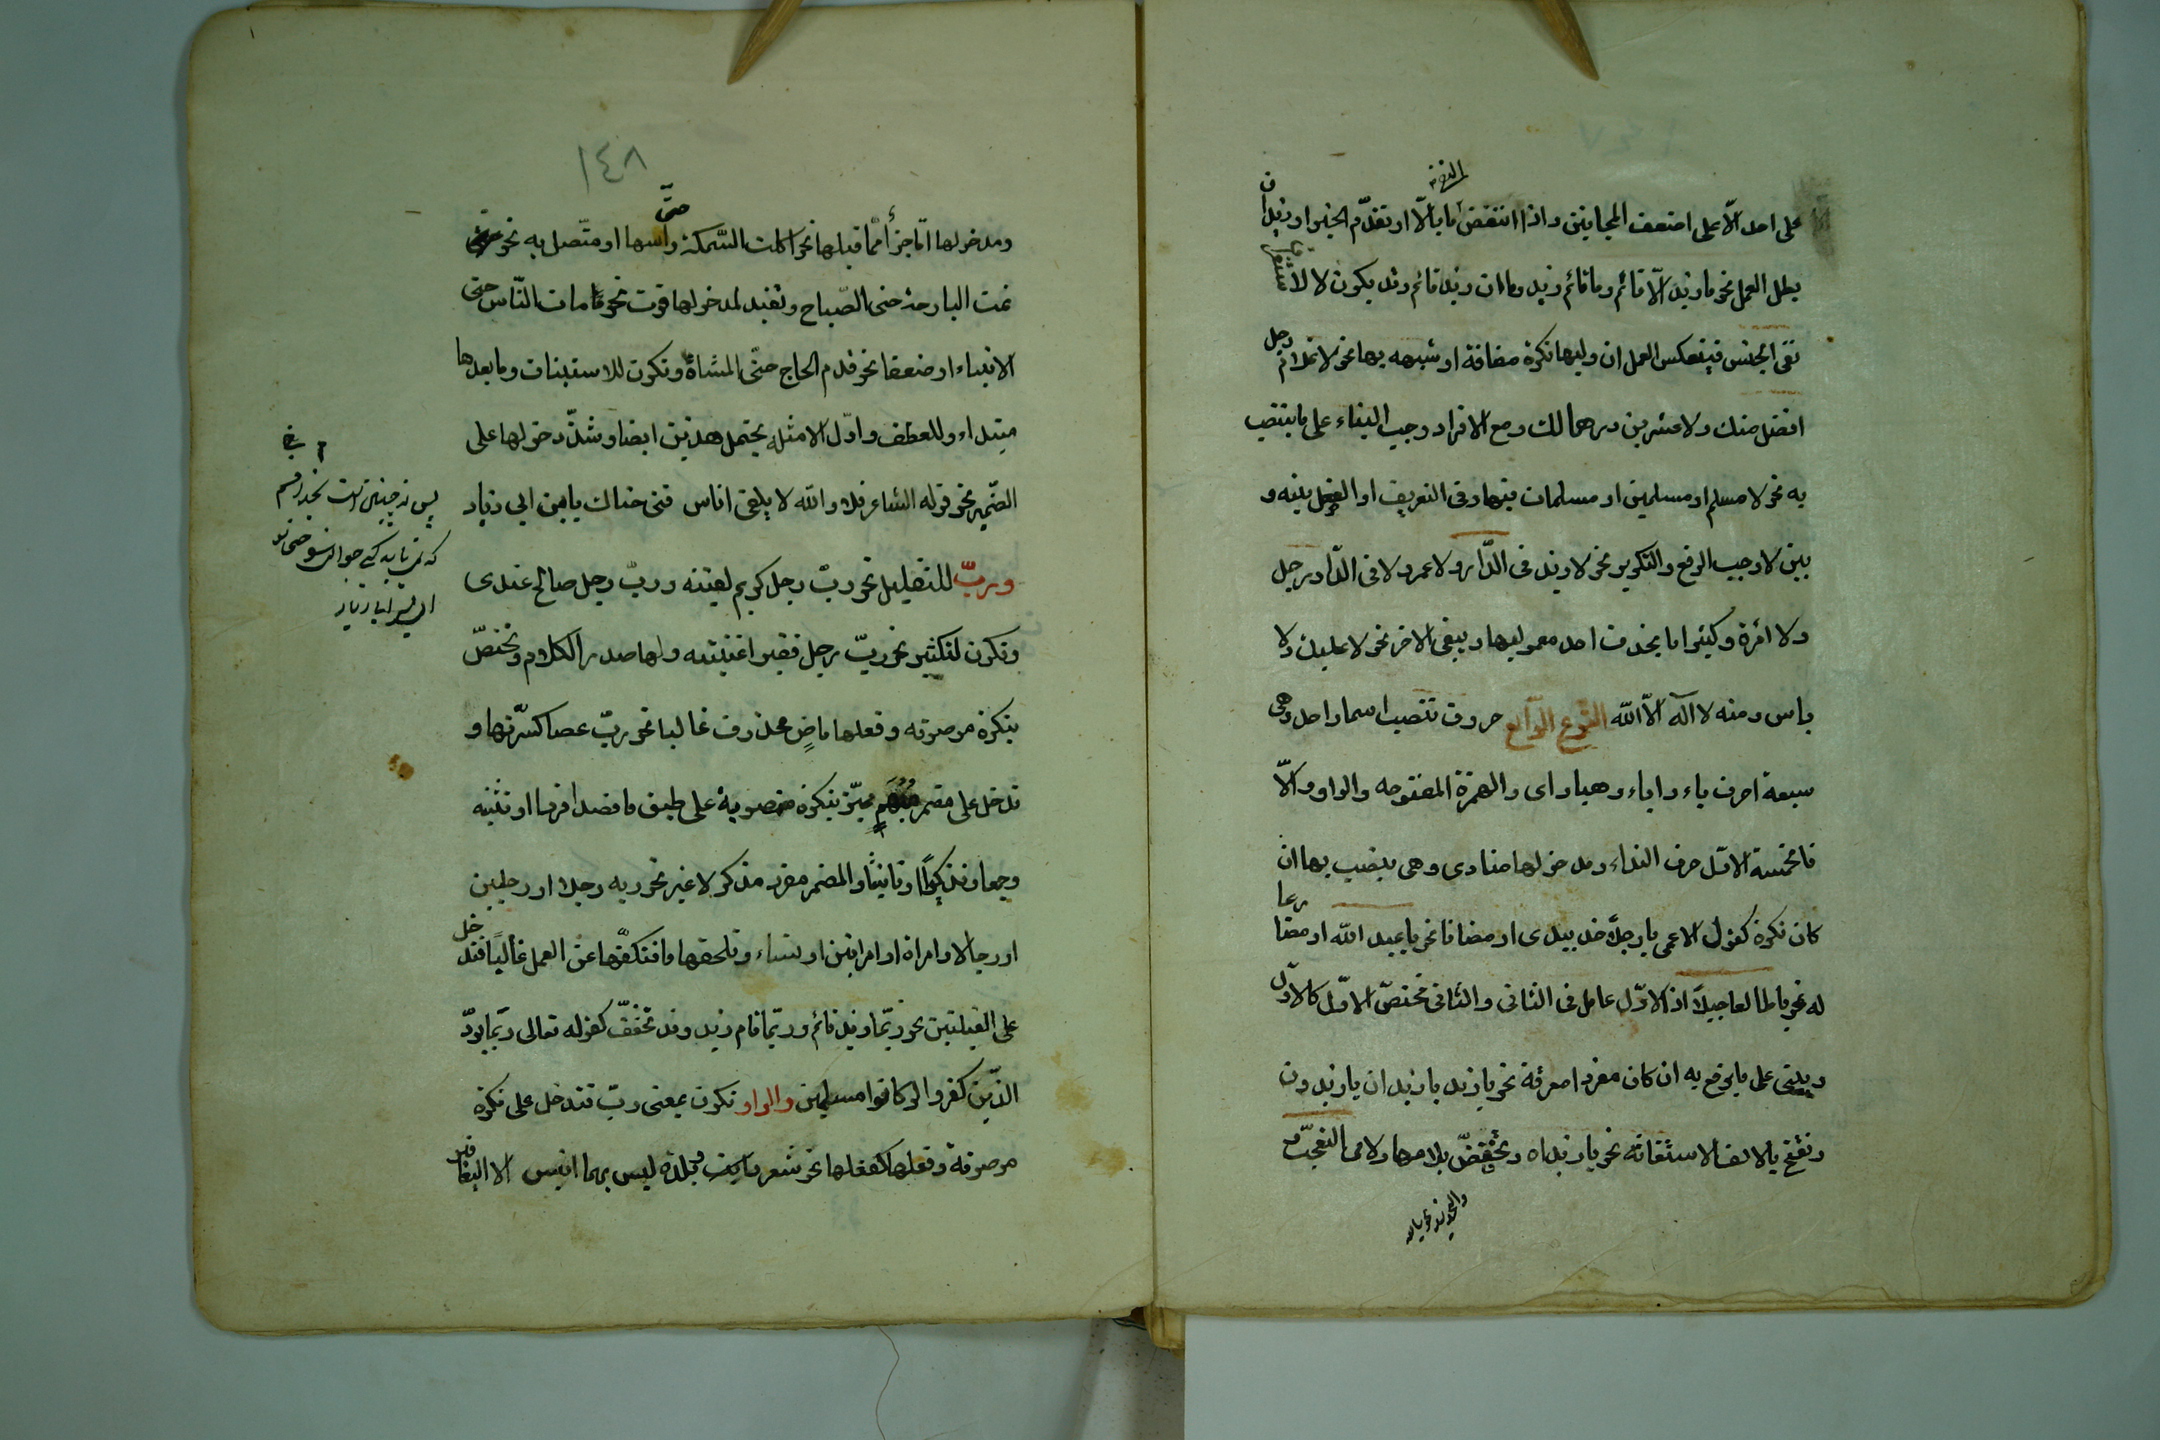 على احد الّا على اضعف المجانين واذا انتقض ما بالّا او تقدّم الخبر او زيد ان
بطل العمل نحو ما زيد الّا قائم وما قائم زيد وما ان زيد قائم وقد يكون لا لاستغراق
نفى الجنس فينعكس العمل ان وليها نكرة مضافة او شبهه بها نحو لا غلام رجل
افضل منك ولا عشرين درهما لك ومع الافراد وجب البناء على ما ينتصب
به نحو لا مسلم او مسلمين او مسلمات فيها وفى التعريف او الفصل بينه و
بين لا وجب الرفع والتكرير نحو لا زيد فى الدّار ولا عمرو لا فى الدّار رجل
ولا امرة وكثيرا ما يحذف احد معموليها ويبقى الاخر نحو لا عليك ولا
باس ومنه لا اله الّا الله النّوع الرّابع حروف تنصب اسما واحدا وهى
سبعة احرف ياء واياء وهيا واى والهمزة المفتوحه والواو والّا
فالخمسة الاوّل حرف النداء ومدخولها منادى وهى ينصب بها ان
كان نكرة كقول الاعمى يا رجلًا خذ بيدى او مضافا نحو يا عبد الله او مضارعا
له نحو يا طالعا جبلًا اذ الاوّل عامل فى الثانى والثانى مختصّ الاوّل كالاوّل
ويبنى على ما يرفع به ان كان مفردا معرفة نحو يا زيد يا زيدان يا زيدون
وتفتح بالالف الاستغاثه نحو يا زيداه ويخفض بلامها ولامى التعجّب
١٤٨
ومدخولها امّا جزأ ممّا قبلها نحو اكلت السّمكة حتّى رأسها او متّصل به نحو
نمت البارحة حتى الصّباح وتفيد لمدخولها قوت نحو مات النّاس حتى
الانبياء او ضعفا نحو قدم الحاج حتّى المشاة وتكون للاستيناف وما بعدها
مبتداء وللعطف واوّل الامثله يحتمل هذين ايضا وشذّ دخولها على
الضّمير نحو قوله الشاعر فلا والله لا يلقى اناس فتى حتاك يا ابن ابى زياد
وربّ للتقليل نحو ربّ رجل كريم لقيته وربّ رجل صالح عندى
وتكون لتكثير نحو ربّ رجل فقير اغنيته ولها صدر الكلام وتختصّ
بنكرة موصوفه وفعلها ماضٍ محذوف غالبا نحو ربّ عصا كسّرتها و
تدخل على مضمر مبهم مميّز بنكرة منصوبة على طبق ما قصد افرادا او تثنيه
وجمعا وتذكيرًا وتانيثا والمضمر مفرد مذكر لا غير نحو ربه رجلا او رجلين
او رجالا او امراة او امراتين او نساء وتلحقها ما فتكفّها عن العمل غالبًا فتدخل
على القبيلتين نحو ربّما زيد قائم وربّما قام زيد وقد تخفّف كقوله تعالى ربّما يودّ
الذّين كفروا لو كانوا مسلمين والواو تكون بمعنى ربّ فتدخل على نكرة
موصوفة وفعلها كفعلها نحو شعر وبلدة ليس بها انيس الا اليعافير